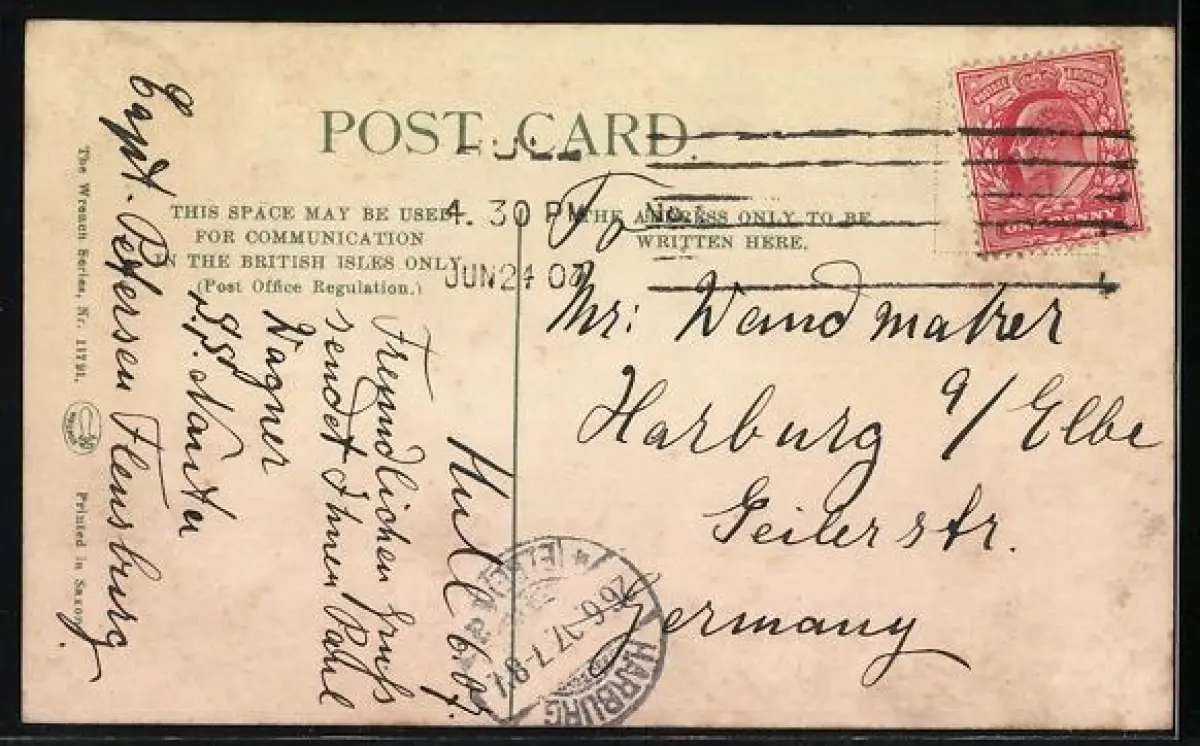 POST CARD.
THIS SPACE MAY BE USED
FOR COMMUNICATION
IN THE BRITISH ISLES ONLY
(Post Office Regulation.)
THE ADDRESS ONLY TO BE
WRITTEN HERE.
4. 30 PM
JUN 24 07
To
Mr: Wandmaker
Harburg a/ Elbe
Geilerstr.
Germany
Hull 6.07.
Freundlichen Gruß
sendet Ihnen
Wagner
Capt. Petersen Flensburg.
The Wrench Series, Nr. 11791.
Printed in Saxony.
HARBURG
(ELBE)
26.6.07.7-8V.